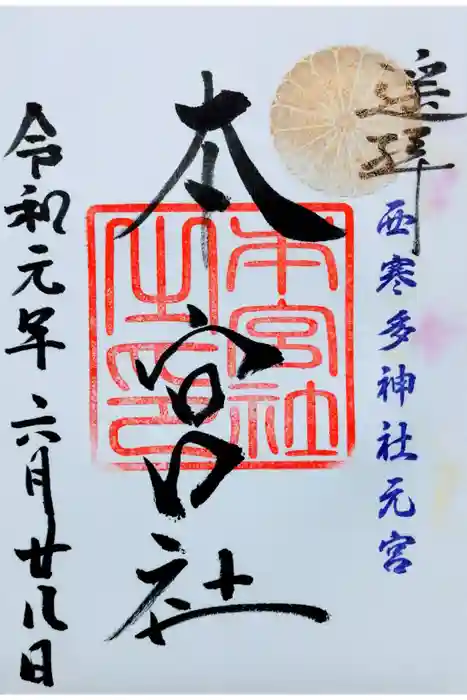 遥拝
西寒多神社元宮
本宮社
本宮社之印
令和元年六月廿八日